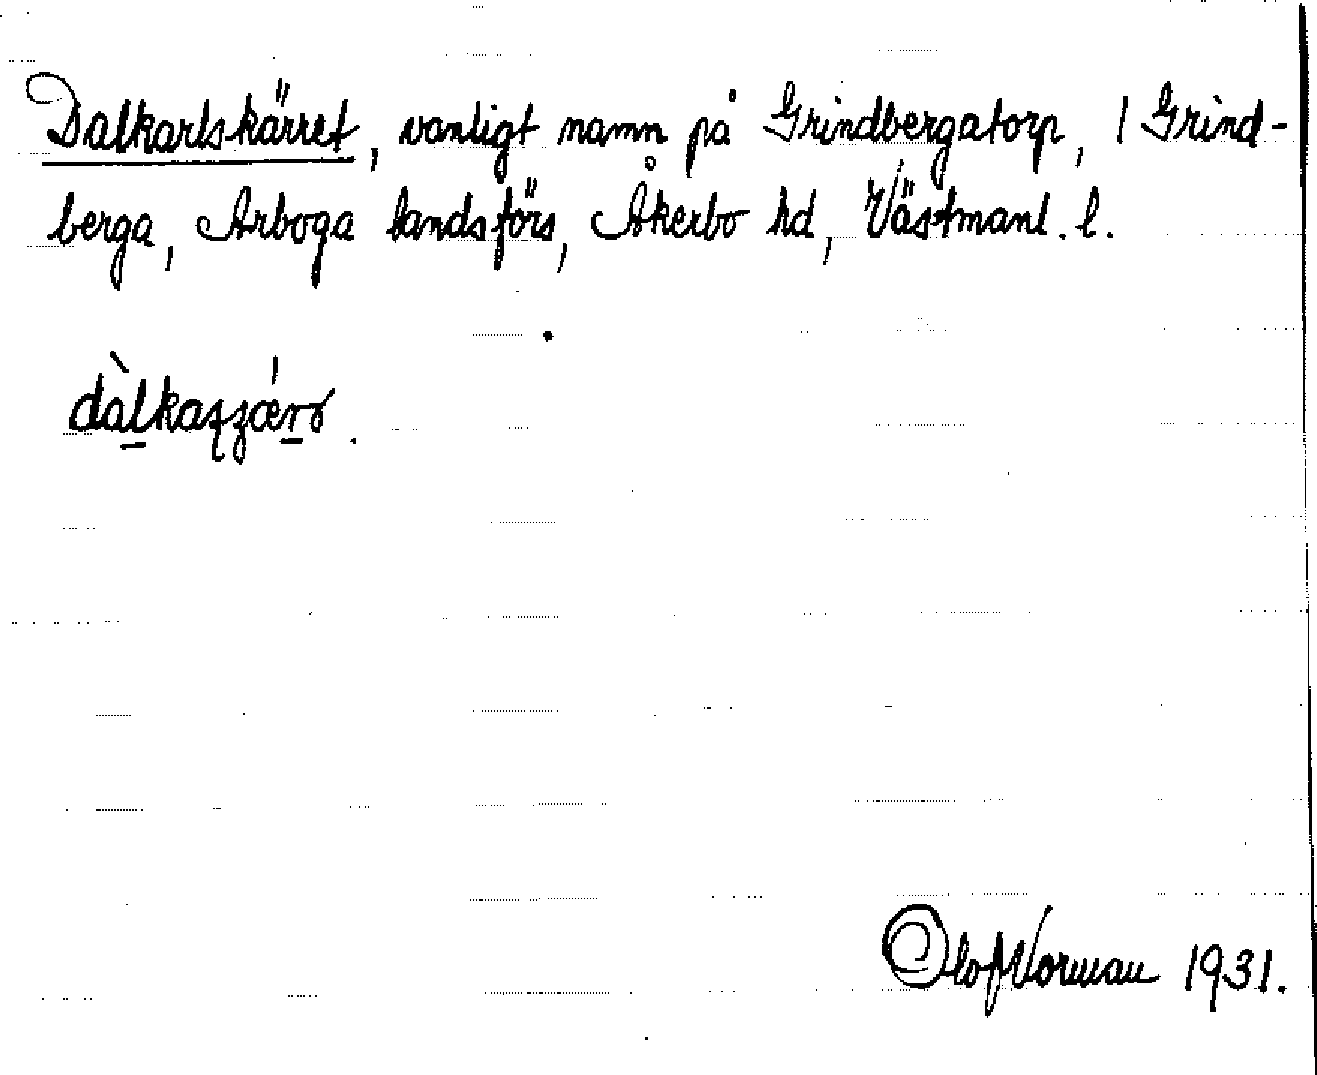 Dalkarlskärret, vanligt namn på Grindbergatorp, 1 Grind-
berga, Arboga landsförs, Åkerbo hd, Västmanl. l.
Olof Norman 1931.